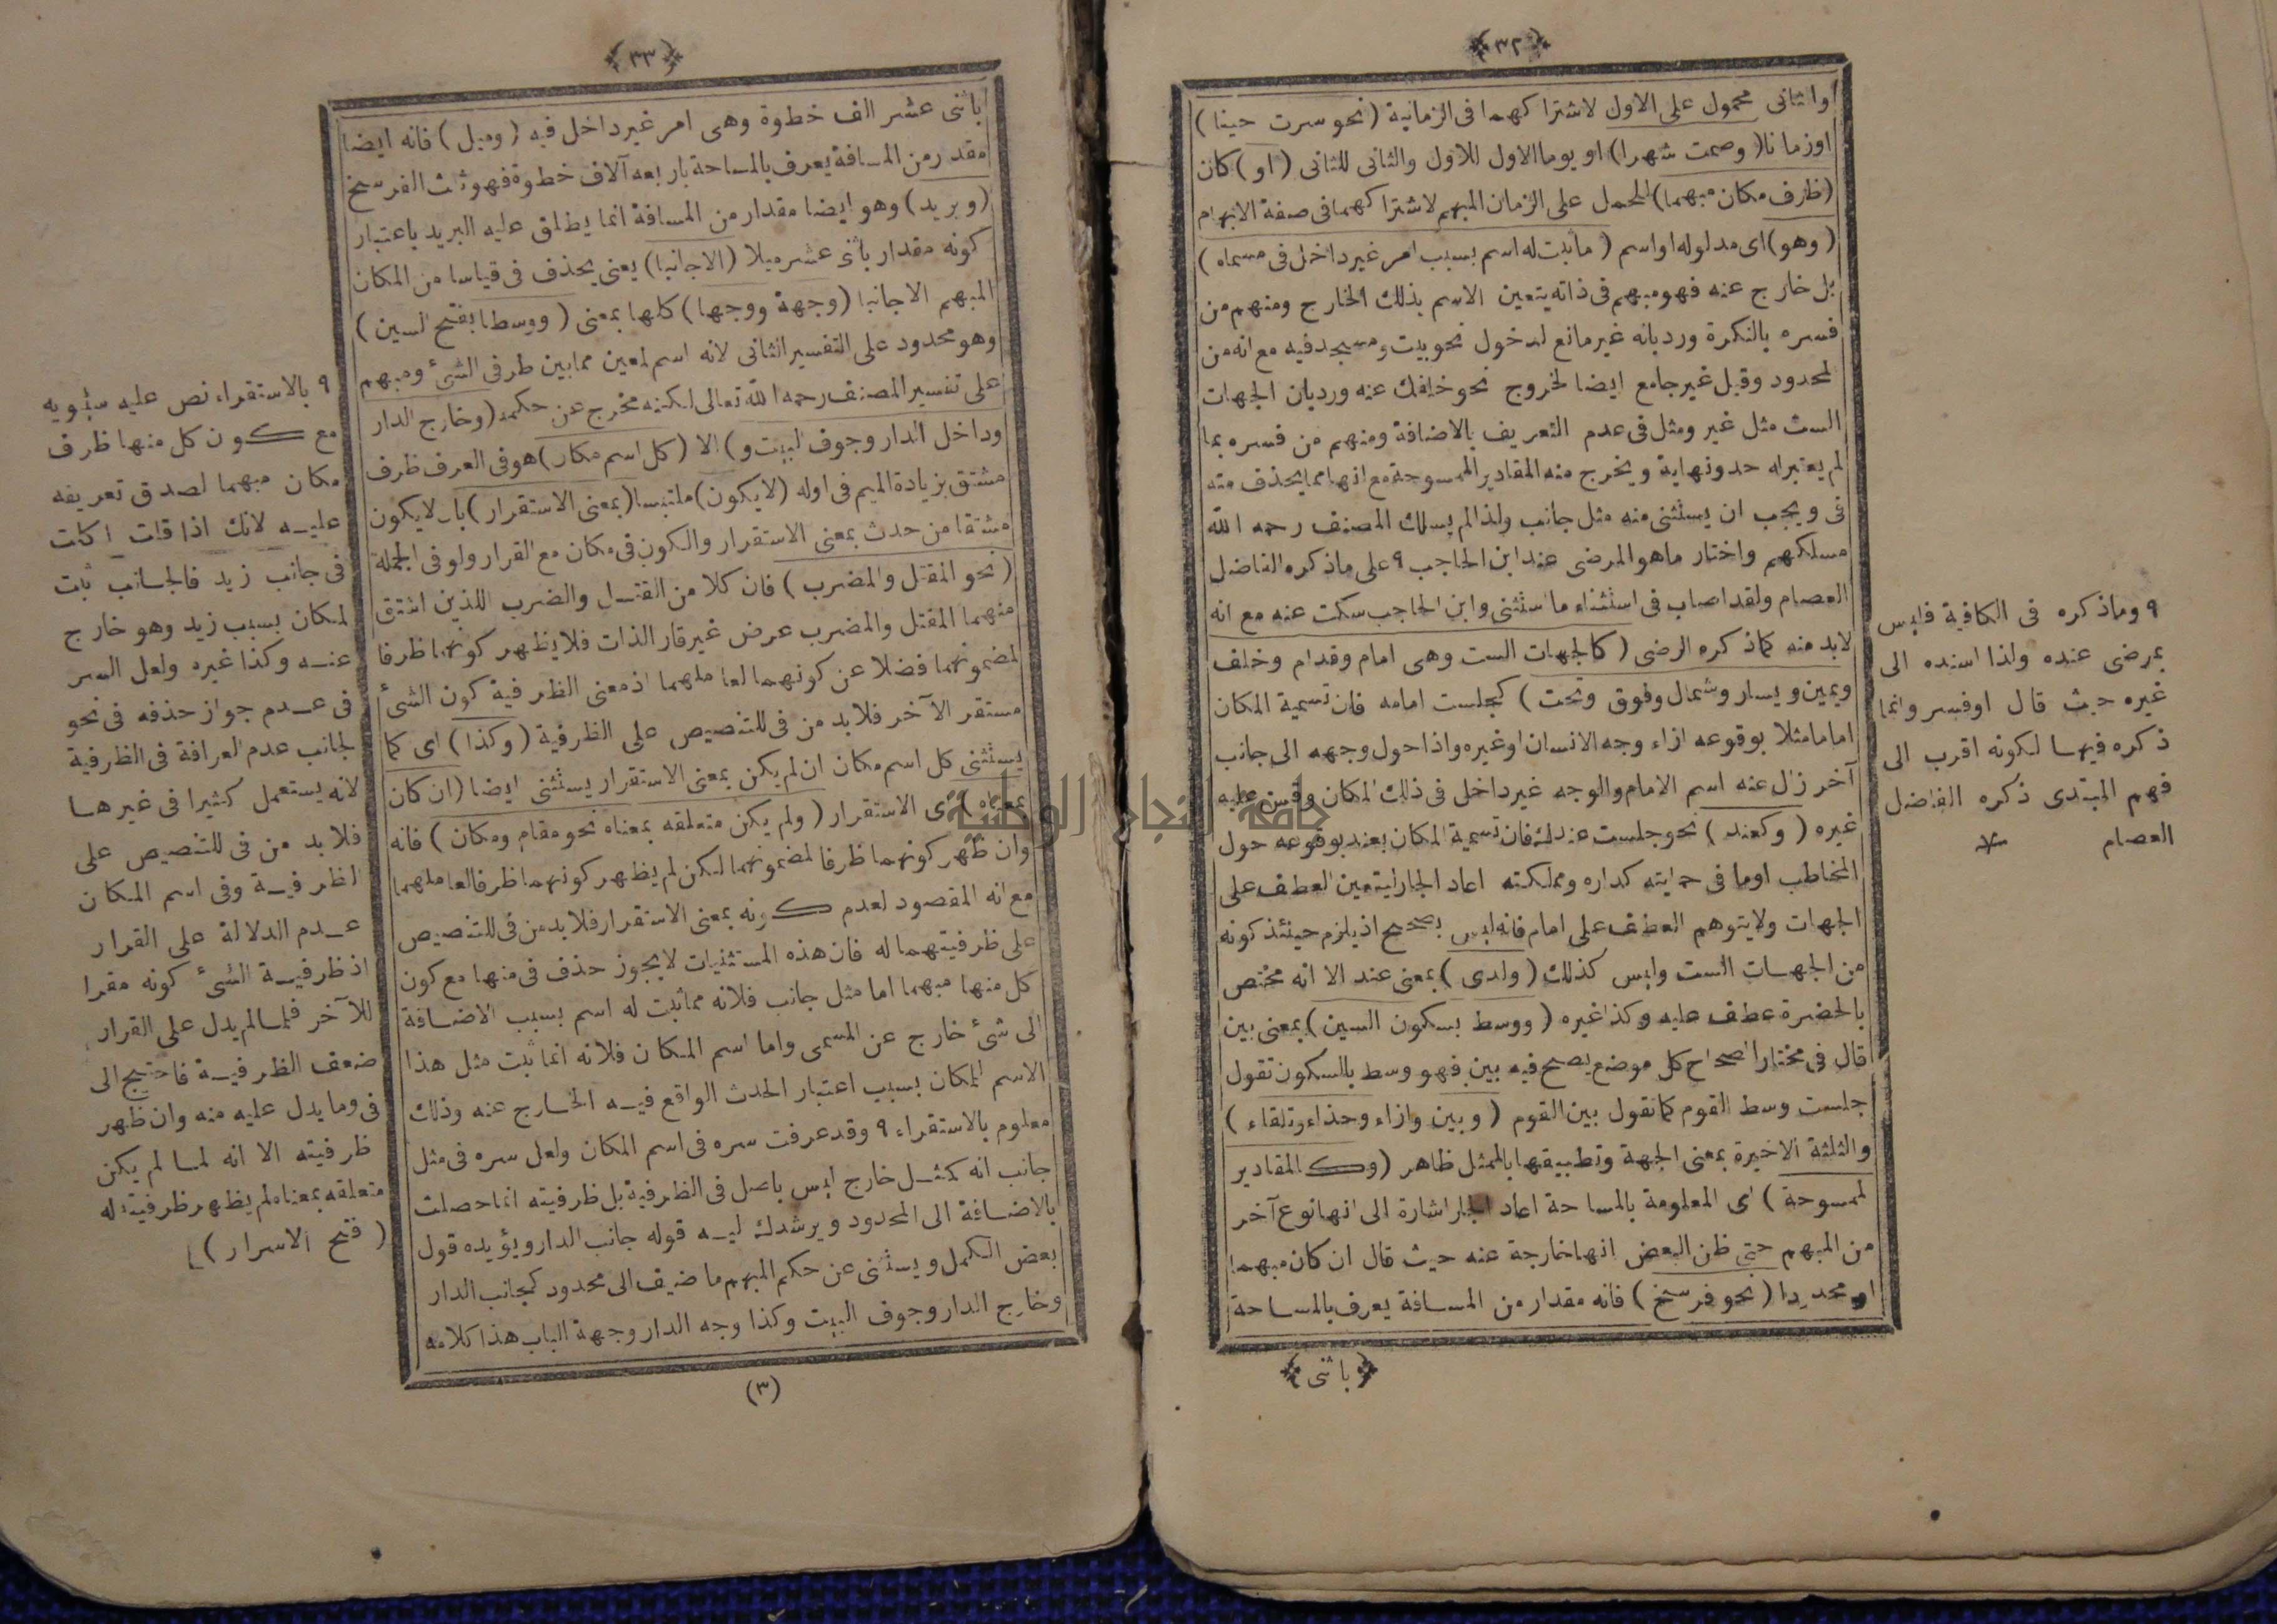 ﴿٣٢﴾
والثانى محمول على الاول لاشتراكهما فى الزمانية (نحو سرت حينا)
اوزمانا (وصمت شهرا) او يوما الاول للاول والثانى للثانى (او) كان
(ظرف مكان مبهما) للحمل على الزمان المبهم لاشتراكهما فى صفة الابهام
(وهو) اى مدلوله او اسم (ماثبت له اسم بسبب امر غير داخل فى مسماه)
بل خارج عنه فهو مبهم فى ذاته يتعين الاسم بذلك الخارج ومنهم من
فسره بالنكرة ورد بانه غير مانع لدخول نحو بيت ومسجد فيه مع انه من
المحدود وقيل غير جامع ايضا لخروج نحو خلفك عنه ورد بان الجهات
الست مثل غير ومثل فى عدم التعريف بالاضافة ومنهم من فسره بما
لم يعتبر له حد ونهاية ويخرج منه المقادير الممسوحة مع انها مما يحذف منه
فى ويجب ان يستثنى منه مثل جانب ولذا لم يسلك المصنف رحمه الله
مسلكهم واختار ماهو المرضى عند ابن الحاجب ٩ على ماذكره الفاضل
العصام ولقد اصاب فى استثناء ما استثنى وابن الحاجب سكت عنه مع انه
لابد منه كما ذكره الرضى (كالجهات الست وهى امام وقدام وخلف
ويمين ويسار وشمال وفوق وتحت) كجلست امامه فان تسمية المكان
اماما مثلا بوقوعه ازاء وجه الانسان او غيره واذا حول وجهه الى جانب
آخر زال عنه اسم الامام والوجه غير داخل فى ذلك المكان وقس عليه
غيره (وكعند) نحو جلست عندك فان تسمية المكان بعند بوقوعه حول
المخاطب او ما فى حمايته كداره ومملكته اعاد الجار ليتعين العطف على
الجهات ولا يتوهم العطف على امام فانه ليس بصحيح اذ يلزم حينئذ كونه
من الجهات الست وليس كذلك (ولدى) بمعنى عند الا انه مختص
بالحضرة عطف عليه وكذا غيره (ووسط بسكون السين) بمعنى بين
قال فى مختار الصحاح كل موضع يصح فيه بين فهو وسط بالسكون تقول
جلست وسط القوم كما تقول بين القوم (وبين وازاء وحذاء وتلقاء)
والثلثة الاخيرة بمعنى الجهة وتطبيقها بالممثل ظاهر (وكالمقادير
الممسوحة) اى المعلومة بالمساحة اعاد الجار اشارة الى انها نوع آخر
من المبهم حتى ظن البعض انها خارجة عنه حيث قال ان كان مبهما
او محدودا (نحو فرسخ) فانه مقدار من المسافة يعرف بالمساحة
﴿باثنى﴾
٩ وماذكره فى الكافية فليس
بمرضى عنده ولذا اسنده الى
غيره حيث قال او فسر وانما
ذكره فيها لكونه اقرب الى
فهم المبتدى ذكره الفاضل
العصام
﴿٣٣﴾
باثنى عشر الف خطوة وهى امر غير داخل فيه (وميل) فانه ايضا
مقدر من المسافة يعرف بالمساحة باربعه آلاف خطوة فهو ثلث الفرسخ
(وبريد) وهو ايضا مقدار من المسافة انما يطلق عليه البريد باعتبار
كونه مقدار باثنى عشر ميلا (الاجانبا) يعنى يحذف فى قياسا من المكان
المبهم الاجانبا (وجهة ووجها) كلها بمعنى (ووسطا بفتح السين)
وهو محدود على التفسير الثانى لانه اسم لمعين مما بين طرفى الشئ ومبهم
على تفسير المصنف رحمه الله تعالى لكنه مخرج عن حكمه (وخارج الدار
وداخل الدار وجوف البيت و) الا (كل اسم مكان) هو فى العرف ظرف
مشتق بزيادة الميم فى اوله (لا يكون) ملتبسا (بمعنى الاستقرار) بان لا يكون
مشتقا من حدث بمعنى الاستقرار والكون فى مكان مع القرار ولو فى الجملة
(نحو المقتل والمضرب) فان كلا من القتل والضرب اللذين اشتق
منهما المقتل والمضرب عرض غير قار الذات فلا يظهر كونهما ظرفا
لمضمونهما فضلا عن كونهما لعاملهما اذ معنى الظرفية كون الشئ
مستقر الآخر فلا بد من فى للتنصيص على الظرفية (وكذا) اى كما
يستثنى كل اسم مكان ان لم يكن بمعنى الاستقرار يستثنى ايضا (ان كان
بمعناه) اى الاستقرار (ولم يكن متعلقه بمعناه نحو مقام ومكان) فانه
وان ظهر كونهما ظرفا لمضمونهما لكن لم يظهر كونهما ظرفا لعاملهما
مع انه المقصود لعدم كونه بمعنى الاستقرار فلا بد من فى للتنصيص
على ظرفيتهما له فان هذه المستثنيات لا يجوز حذف فى منها مع كون
كل منها مبهما اما مثل جانب فلانه مما ثبت له اسم بسبب الاضافة
الى شئ خارج عن المسمى واما اسم المكان فلانه انما ثبت مثل هذا
الاسم للمكان بسبب اعتبار الحدث الواقع فيه الخارج عنه وذلك
معلوم بالاستقراء ٩ وقد عرفت سره فى اسم المكان ولعل سره فى مثل
جانب انه كمثل خارج ليس باصل فى الظرفية بل ظرفيته انما حصلت
بالاضافة الى المحدود ويرشدك اليه قوله جانب الدار ويؤيده قول
بعض الكمل ويستثنى عن حكم المبهم ما ضيف الى محدود كجانب الدار
وخارج الدار وجوف البيت وكذا وجه الدار وجهة الباب هذا كلامه
(٣)
٩ بالاستقراء نص عليه سيبويه
مع كون كل منها ظرف
مكان مبهما لصدق تعريفه
عليه لانك اذا قلت اكلت
فى جانب زيد فالجانب ثبت
لمكان بسبب زيد وهو خارج
عنه وكذا غيره ولعل السر
فى عدم جواز حذفه فى نحو
لجانب عدم العرافة فى الظرفية
لانه يستعمل كثيرا فى غيرها
فلا بد من فى للتنصيص على
الظرفية وفى اسم المكان
عدم الدلالة على القرار
اذ ظرفية الشئ كونه مقرا
للآخر فلما لم يدل على القرار
ضعف الظرفية فاحتيج الى
فى وما يدل عليه منه وان ظهر
ظرفيته الا انه لما لم يكن
متعلقه بمعناه لم يظهر ظرفيته له
(فتح الاسرار)
جامعة النجاح الوطنية